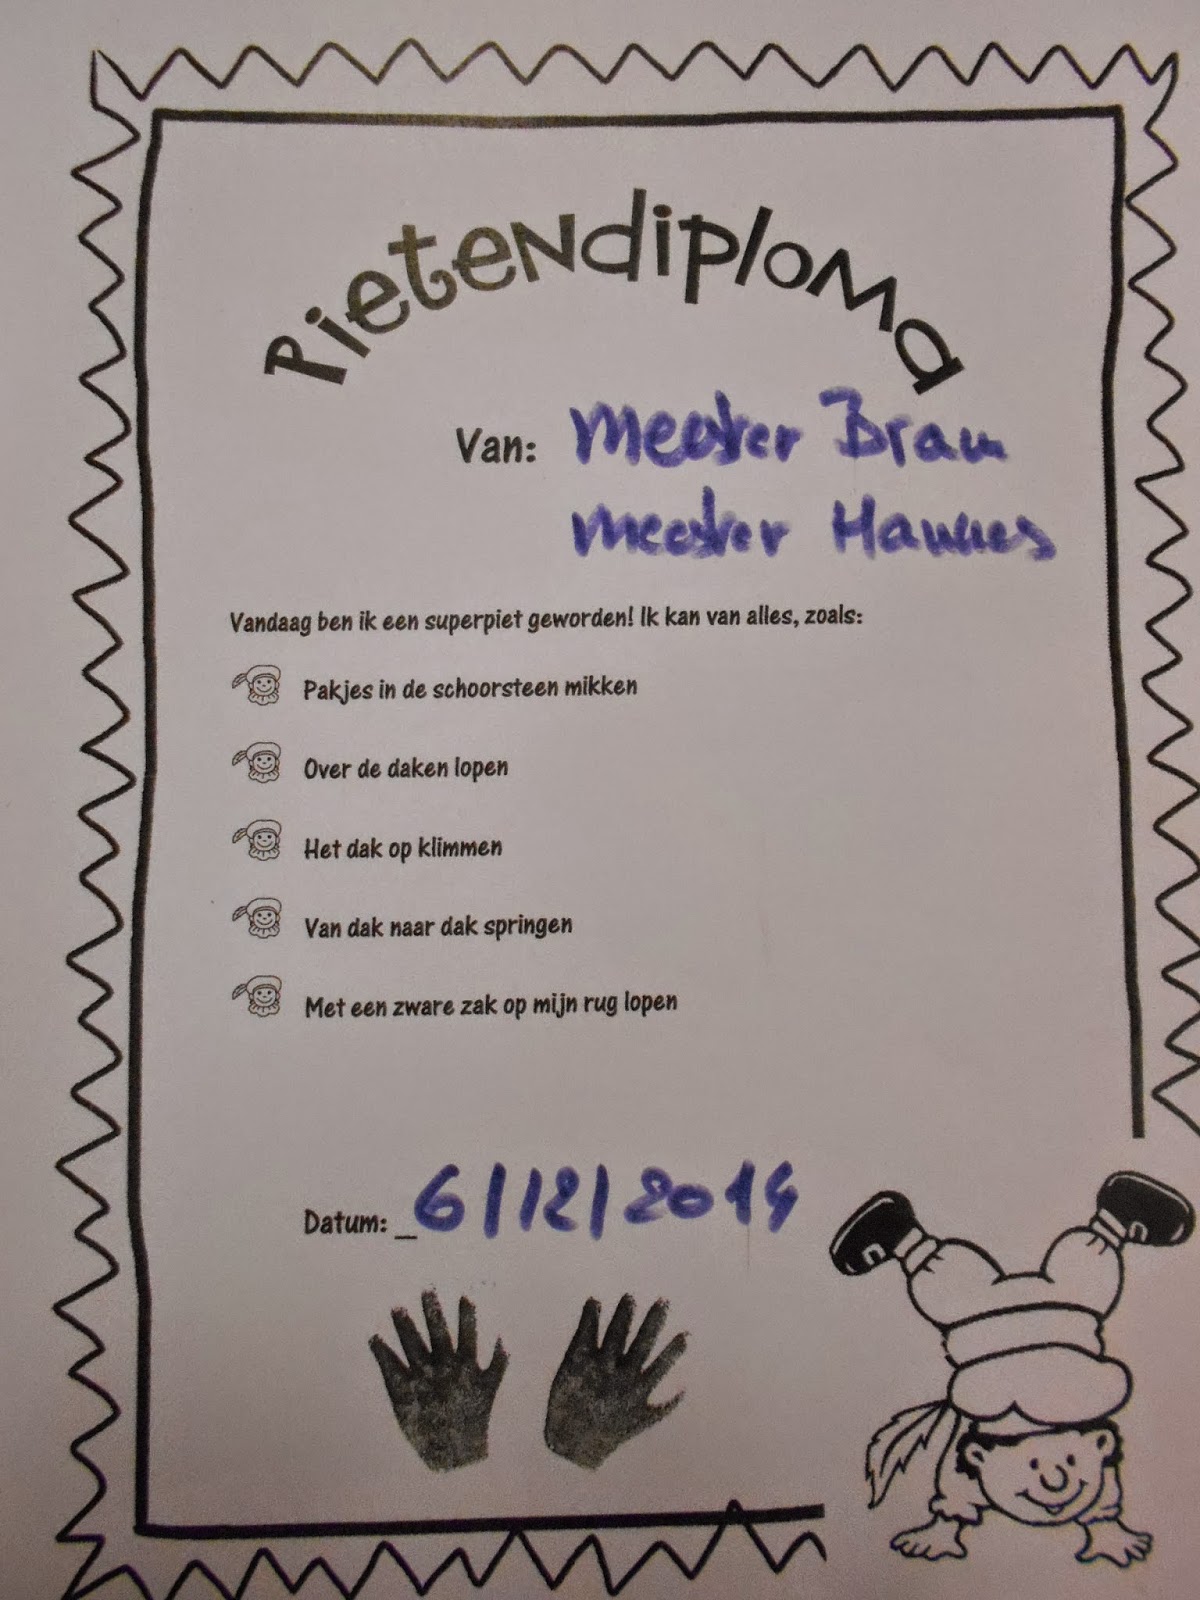 Pietendiploma
Van: Meester Bram
Meester Hannes
Vandaag ben ik een superpiet geworden! Ik kan van alles, zoals:
Pakjes in de schoorsteen mikken
Over de daken lopen
Het dak op klimmen
Van dak naar dak springen
Met een zware zak op mijn rug lopen
Datum: _6/12/2014